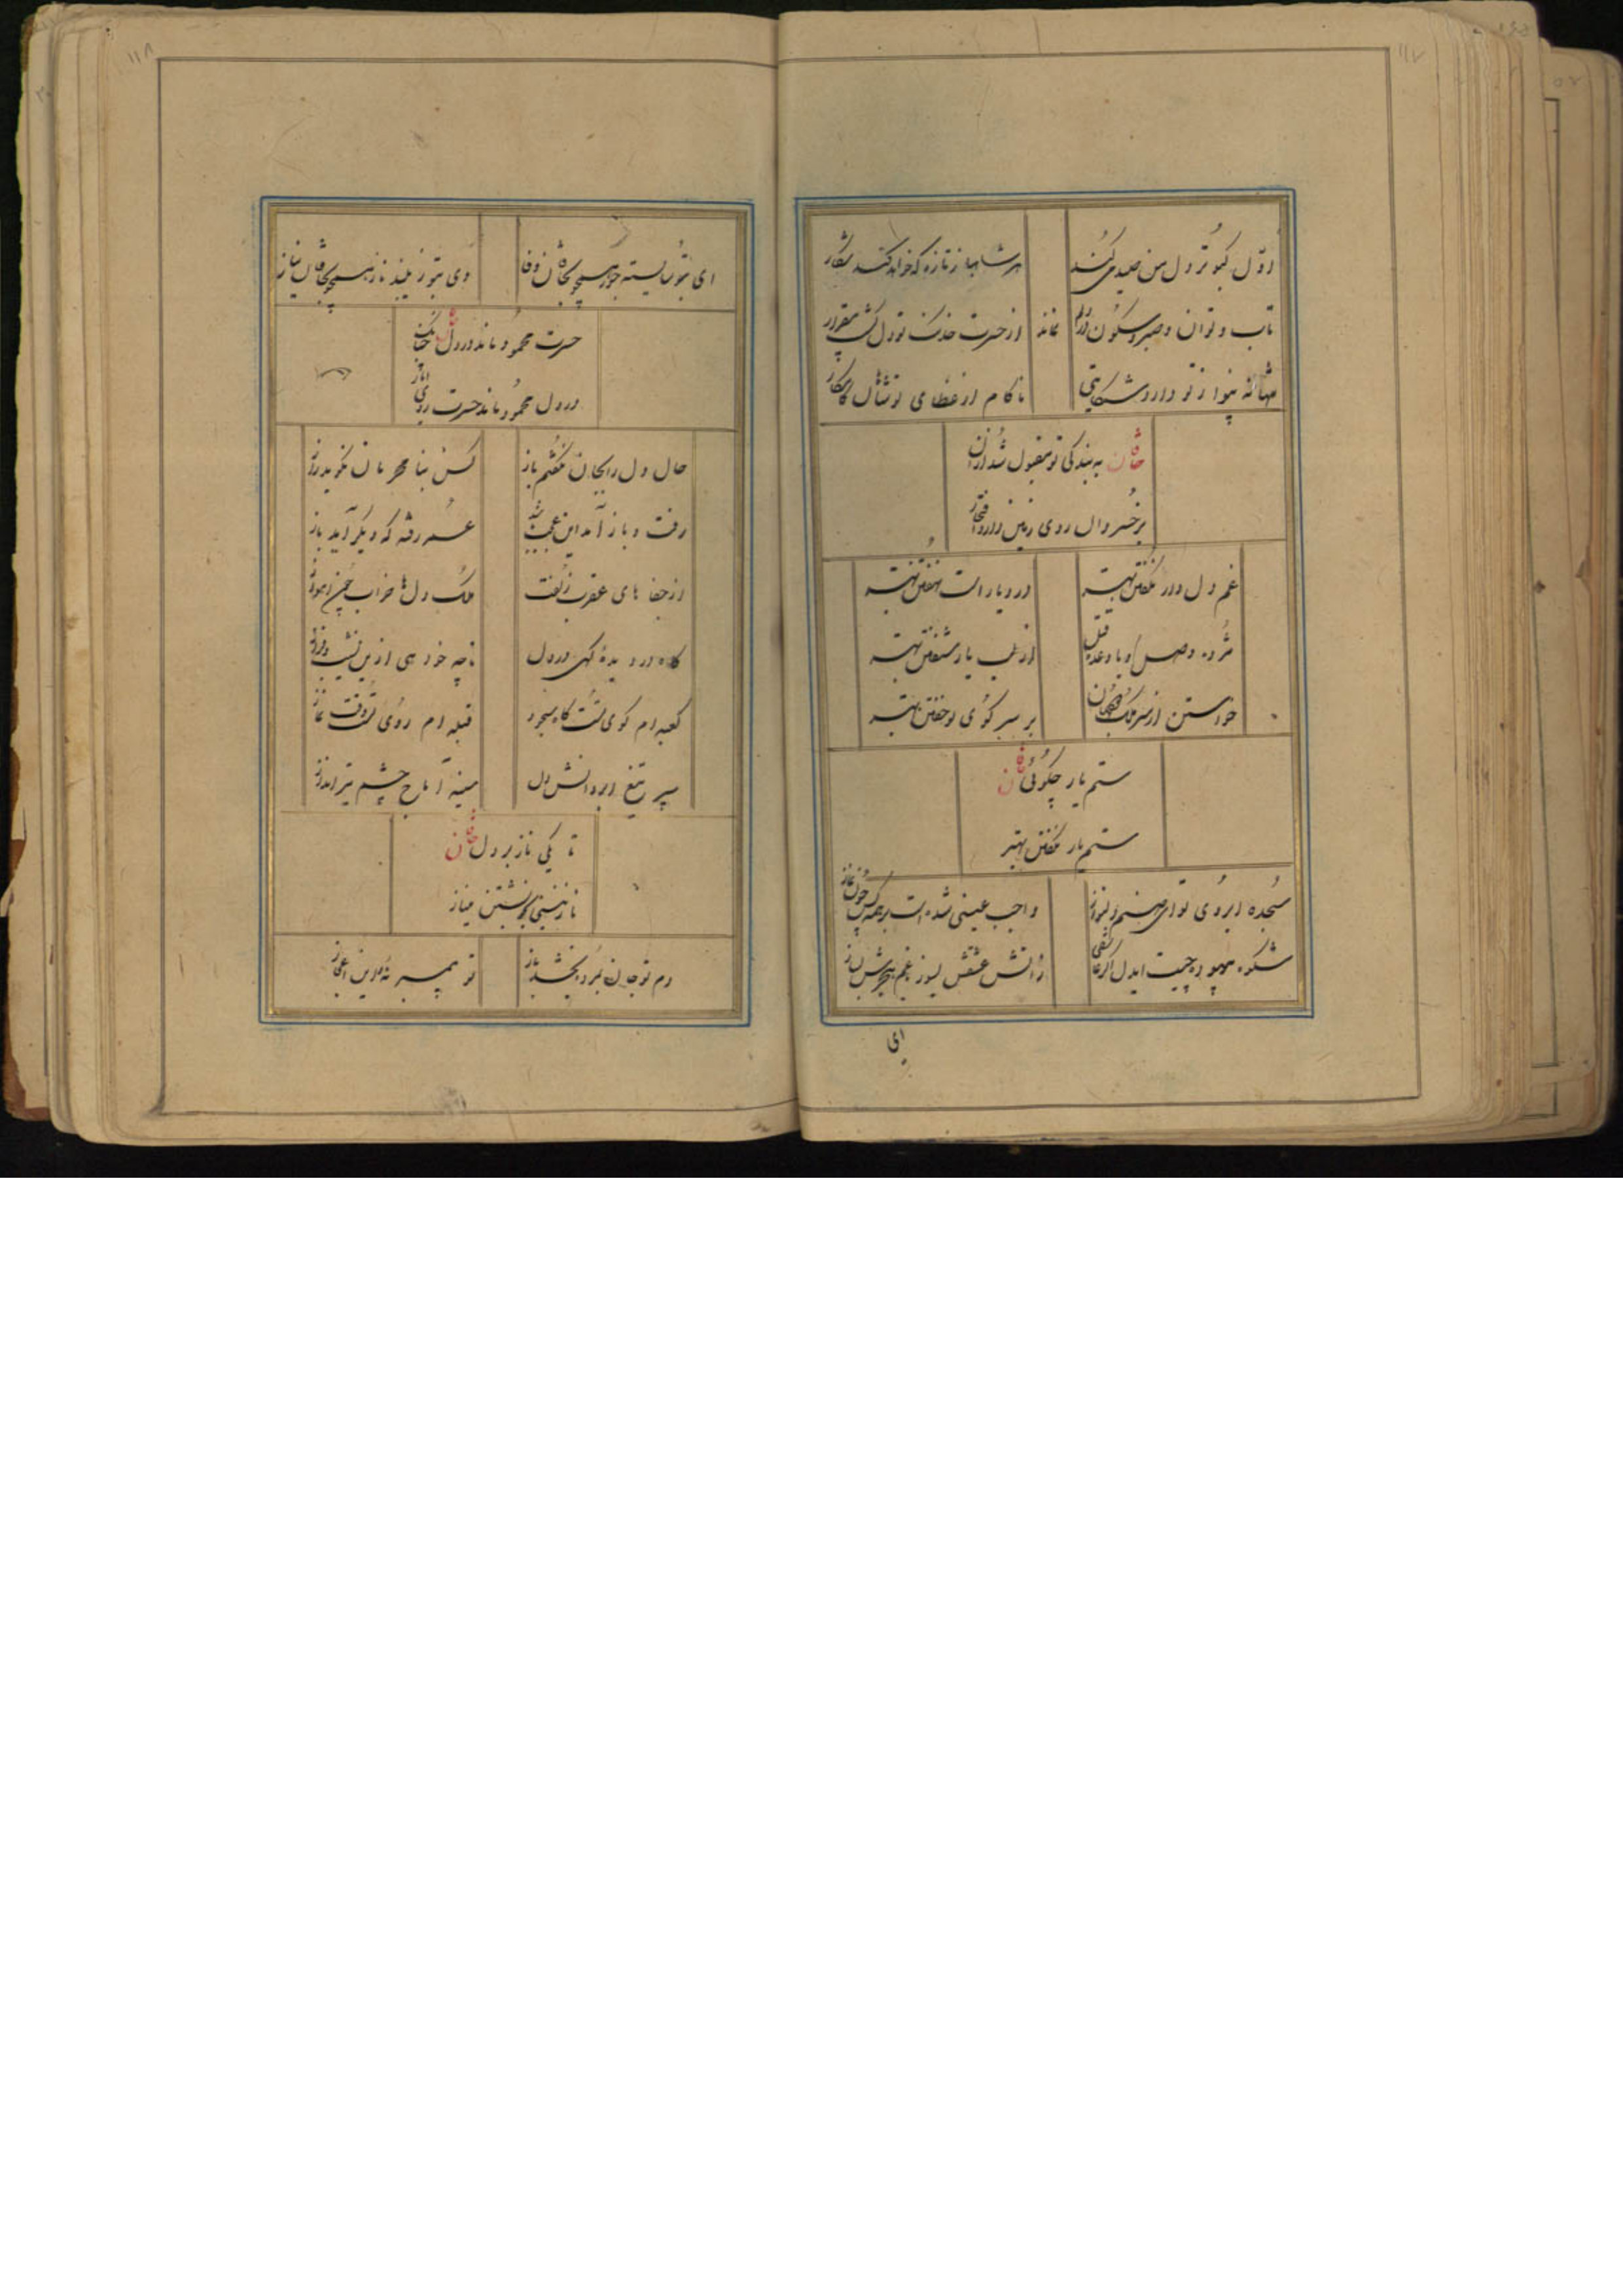 ۱۱۷
اول کبوتر دل من صید می‌کند
هر شاهباز تازه که خواهد کند شکار
تاب و توان و صبر و سکون در دلم نماند
از حسرت خدنک تو دل کشت بیقرار
ناکام از عطای تو شأل کامکار
خاقان به بندکی تو مقبول شد از آن
بر خسروان روی زمین دارد افتخار
غم دل در نکفتن بهتر
درد یار است نهفتن بهتر
مژده وصل و یا وعده قتل
از لب یار شنفتن بهتر
خواستن از سر ملک جهان
بر سر کوی تو خفتن بهتر
ستم یار چکوئی خاقان
ستم یار نکفتن بهتر
سجده ابروی تو ای صنم دلنواز
واجب عینی شده است بر همه کس چون نماز
شکوه بیهوده چیست ایدل اکر عاشقی
ز آتش عشقش بسوز با غم هجرش بساز
ای
۱۱۸
ای بتو شایسته جور همچو بخاقان وفا
وی بتو زیبنده ناز همچو بخاقان نیاز
حسرت محمود ماند در دل خاقان
در دل محمود ماند حسرت روی ایاز
حال دل را بجان نکفتم باز
کس بنا محرمان نکوید راز
رفت و باز آمد این عجب باشد
عمر رفته که دیکر آید باز
از جفا های عقرب زلفت
ملک دل‌ها خراب چون اهواز
کاه در دیدهٔ کهی در دل
تا چه خواهی ازین نشیب و فراز
کعبه ام کوی تست کاه سجود
قبله ام روی تست وقت نماز
سپر تیغ ابروانش دل
سینه آماج چشم تیر انداز
تا بکی ناز بر دل خاقان
نازنینی بخویشتن میناز
دم تو جان بمرده بخشد باز
تو پیمبر نهٔ و این اعجاز